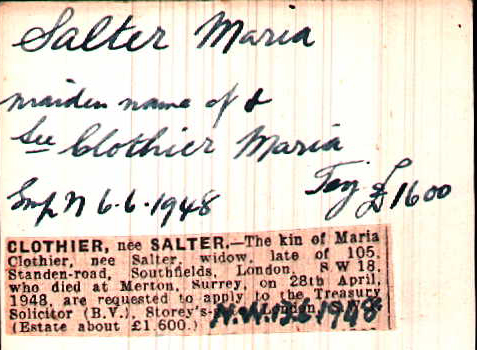 Salter Maria
maiden name of &
See Clothier Maria
Emp N 6.6.1948
Tsy £1600
CLOTHIER, nee SALTER.—The kin of Maria
Clothier, nee Salter, widow, late of 105,
Standen-road, Southfields, London, S W 18,
who died at Merton, Surrey, on 28th April,
1948, are requested to apply to the Treasury
Solicitor (B.V.), Storey's- London,
(Estate about £1,600.) N.W. 13.6.1948